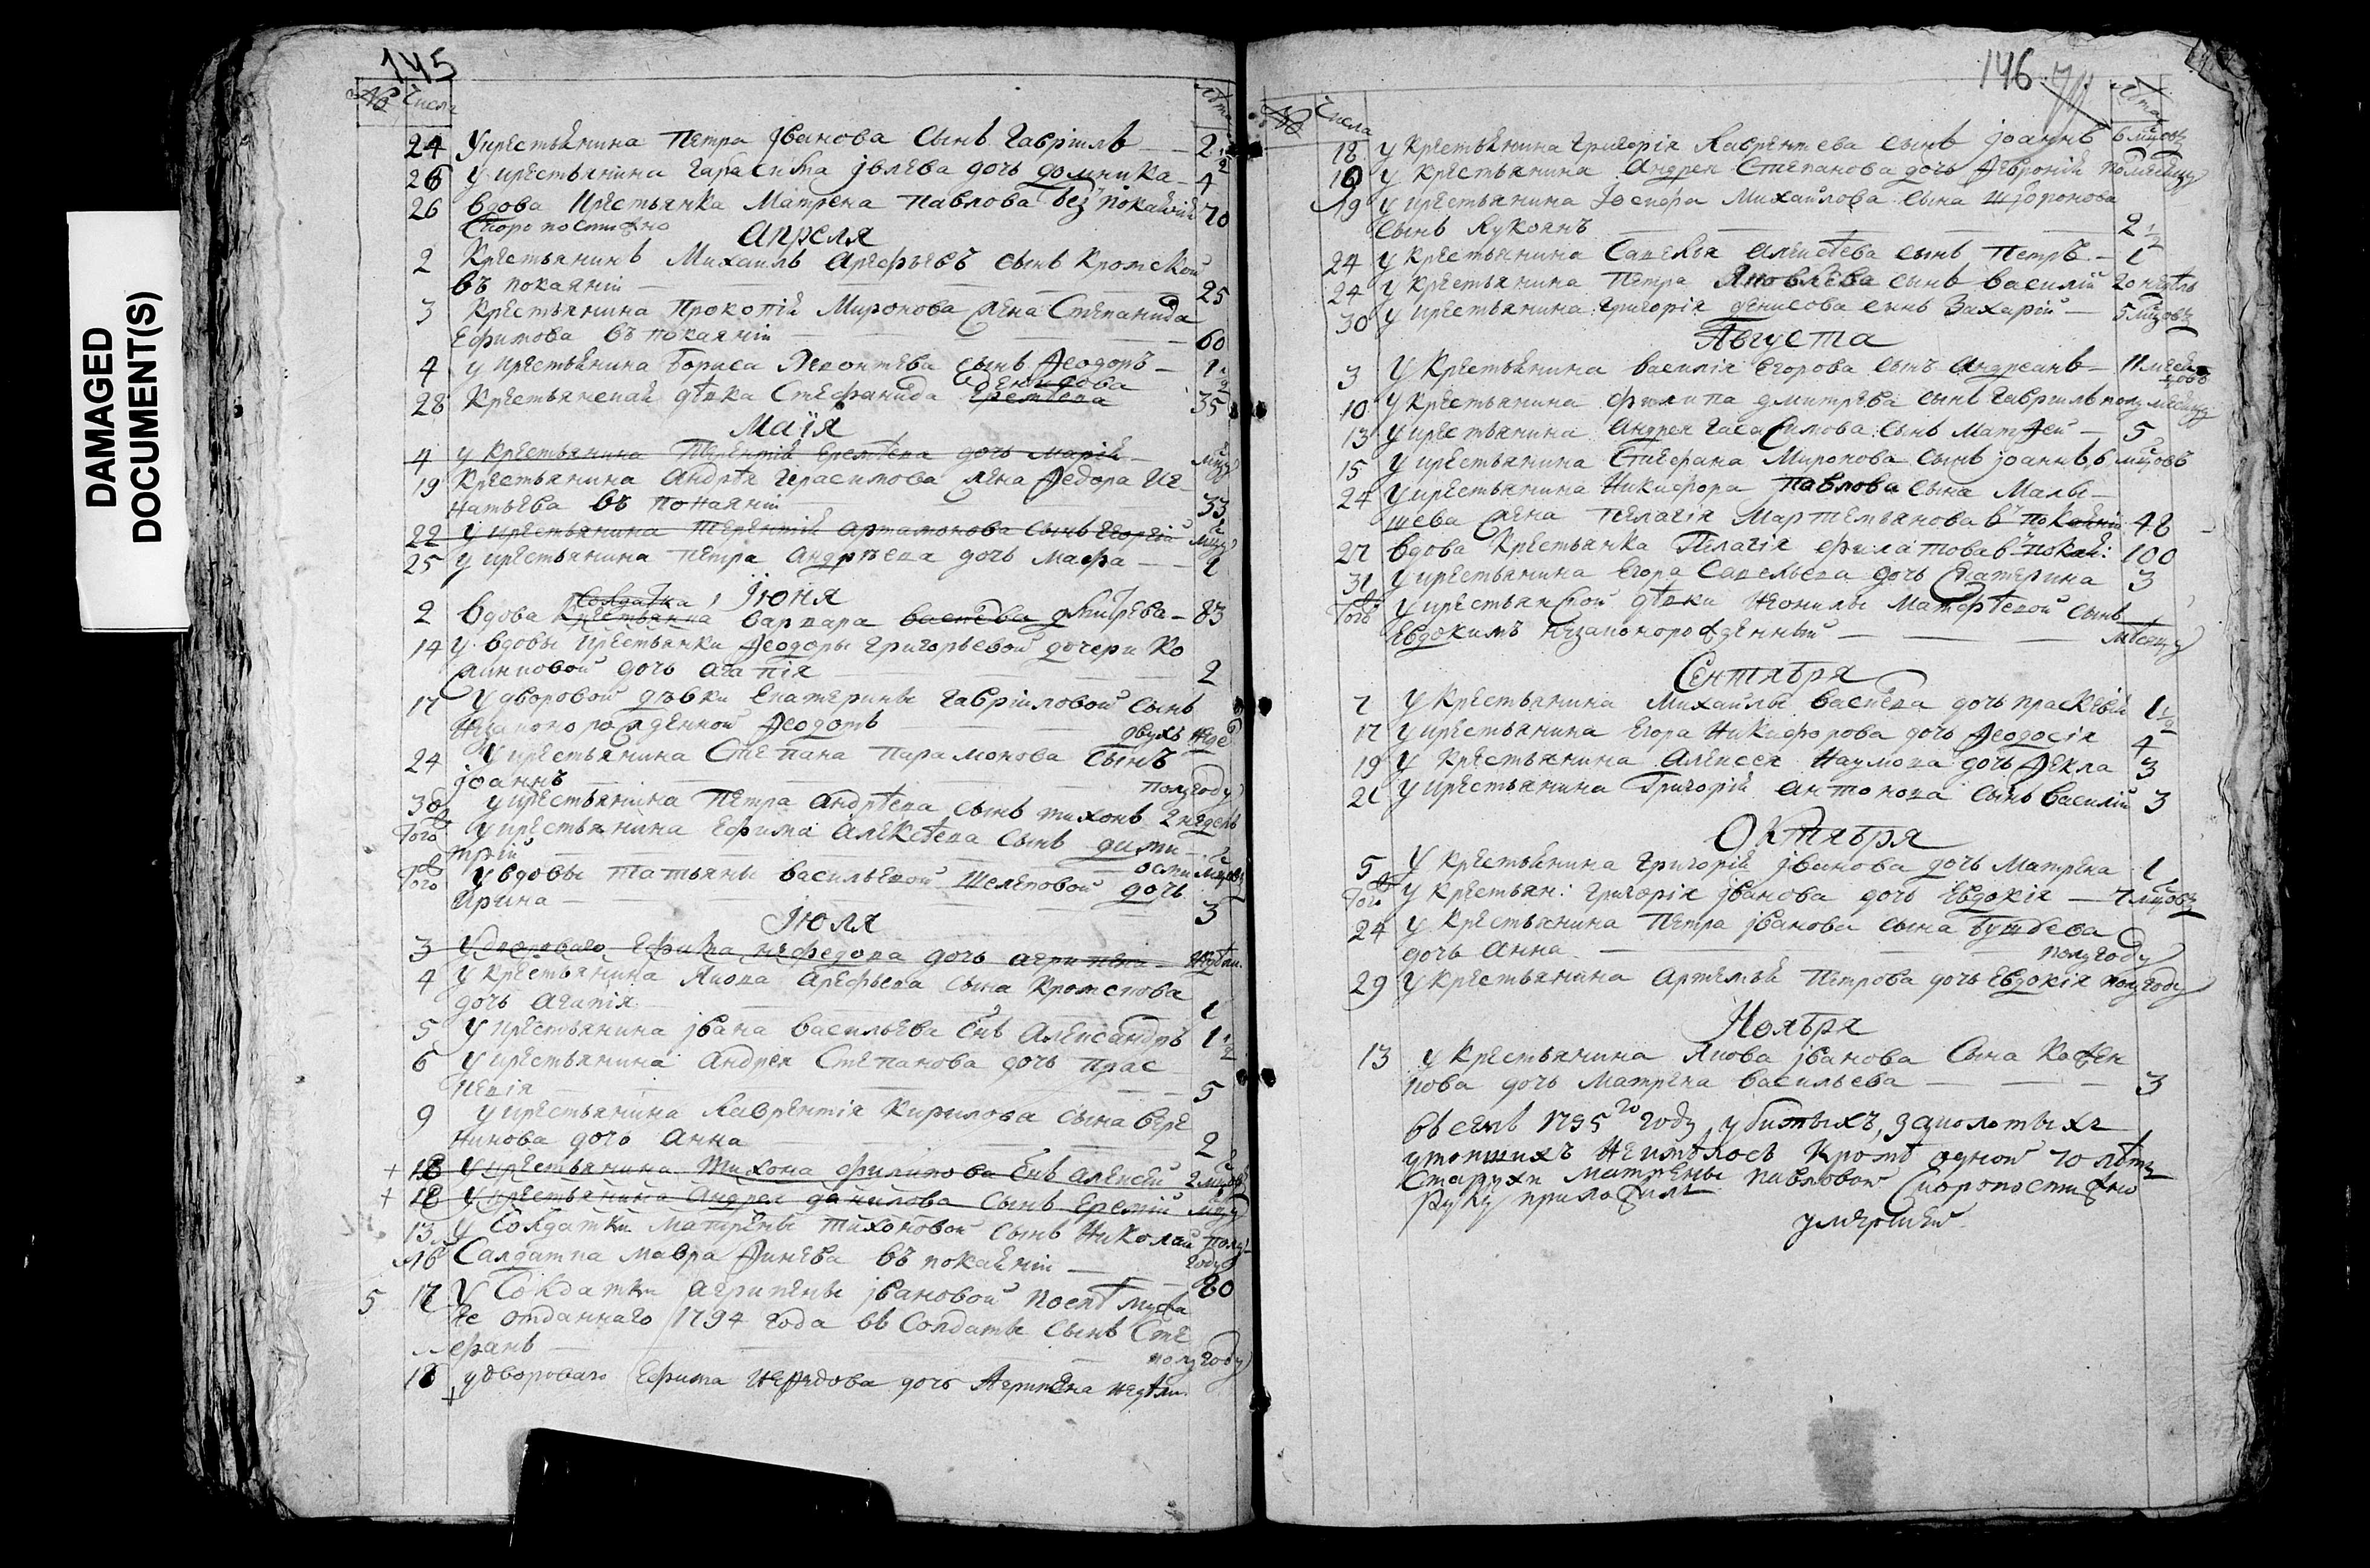 DAMAGED
DOCUMENT(S)
145
№ Числа Лѣта
24 У крестьянина Петра Іванова сынъ Гавріилъ 2 1/2
26 У крестьянина Гарасима дочь Домника 4
26 вдова крестьянка Матрена Павлова безъ покаянія 70
скоропостижно
Апреля
2 Крестьянинъ Михаилъ Арефьевъ сынъ Кромской
въ покаяніи 25
3 Крестьянина Прокопія Миронова жена Степанида
Ефимова въ покаяніи 60
4 У крестьянина Бориса Леонтева сынъ Ѳеодоръ 1 1/2
Денисова
28 Крестьянская дѣвка Стефанида 35
Маія
4 У крестьянина Терентія Еремѣева дочь Марія
19 Крестьянина Андрѣя Герасимова жена Ѳедора Иг
натьева въ покаяніи 33
22 У крестьянина Терентія Артамонова сынъ Георгій
25 У крестьянина Петра Андрѣева дочь Марфа
Іюня
солдатка
2 вдова крестьянка варвара Дмитрева 83
14 У вдовы крестьянки Ѳеодоры Григорьевой дочери Ко
дочь Агапія 2
17 У дворовой дѣвки Екатерины Гавріиловой сынъ
незаконорожденной Ѳеодотъ двухъ недѣ
24 У крестьянина Степана Парамонова сынъ
Іоаннъ полугоду
30 У крестьянина Петра Андрѣева сынъ Тихонъ 2 недель
Того У крестьянина Ефима Алексѣева сынъ Дими
трій осми
Того У вдовы Татьяны Васильевой Шелеповой дочь
Ирина 3
Іюля
3 У двороваго Ефима Нефедова дочь Агрипена
4 У крестьянина Якова Арефьева сына Кромскова
дочь Агапія 1
5 У крестьянина Івана Васильева снъ Александръ 1 1/2
6 У крестьянина Андрея Степанова дочь Прас
кевія 5
9 У крестьянина Лаврентія Кирилова сына Вере
никова дочь Анна 2
+ 12 У крестьянина Тихона Филипова снъ Алексѣй 2
+ 12 У крестьянина Андрея Данилова сынъ Еремій
13 У солдатки Матрены Тихоновой сынъ Николай полу
году
16 Салдатка Мавра въ покаяніи 80
5 17 У солдатки Агрипены Івановой послѣ мужа
ее отданнаго 1794 года въ солдаты сынъ Сте
фанъ полугоду
18 У двороваго Ефима Нефедова дочь Агрипена недѣли
146
№ Числа Лѣта
18 У крестьянина Григорія Лаврентева сынъ Іоаннъ 6
19 У крестьянина Андрея Степанова дочь Ѳевронія полмесяцу
19 У крестьянина Іосифа Михайлова сына
сынъ Лукіанъ 2 1/2
24 У крестьянина Савелья Алексѣева сынъ Петръ 1
24 У крестьянина Петра Яковлева сынъ Василій
30 У крестьянина Григорія Денисова сынъ Захарій 5
Августа
3 У крестьянина Василія Егорова сынъ Андреанъ 11
10 У крестьянина Филипа Дмитрева сынъ Гавріилъ полумесяцу
13 У крестьянина Андрея сынъ Матѳей 5
15 У крестьянина Стефана Миронова сынъ Іоаннъ 6
24 У крестьянина Никифора Павлова сына Малы
шева жена Пелагія Мартемьянова въ покаяніи 48
27 вдова крестьянка Пелагія Филатова въ покая: 100
31 У крестьянина Егора Савельева дочь Екатерина 3
Того У крестьянской дѣвки Неонилы Матѳѣевой сынъ
Евдокимъ незаконорожденный мѣсяцу
Сентября
7 У крестьянина Михайлы дочь Праскевія 1 1/2
17 У крестьянина Егора Никифорова дочь Ѳеодосія 4
19 У крестьянина Алексея Наумова дочь Ѳекла 3
21 У крестьянина Григорія Антонова сынъ Василій 3
Октября
5 У крестьянина Григорія Іванова дочь Матрена 1
Того У крестьян: Григорія Іванова дочь Евдокія 7
24 У крестьянина Петра Іванова сына
дочь Анна полугоду
29 У крестьянина Артемья Петрова дочь Евдокія полугоду
Ноября
13 У крестьянина Якова Іванова сына Кожен
кова дочь Матрена Васильева 3
въ семъ 1795го году, убитыхъ, заколотыхъ
утопшихъ неимѣлось кромѣ одной 70 лѣтъ
старухи Матрены Павловой скоропостижно
руку приложилъ
умершей